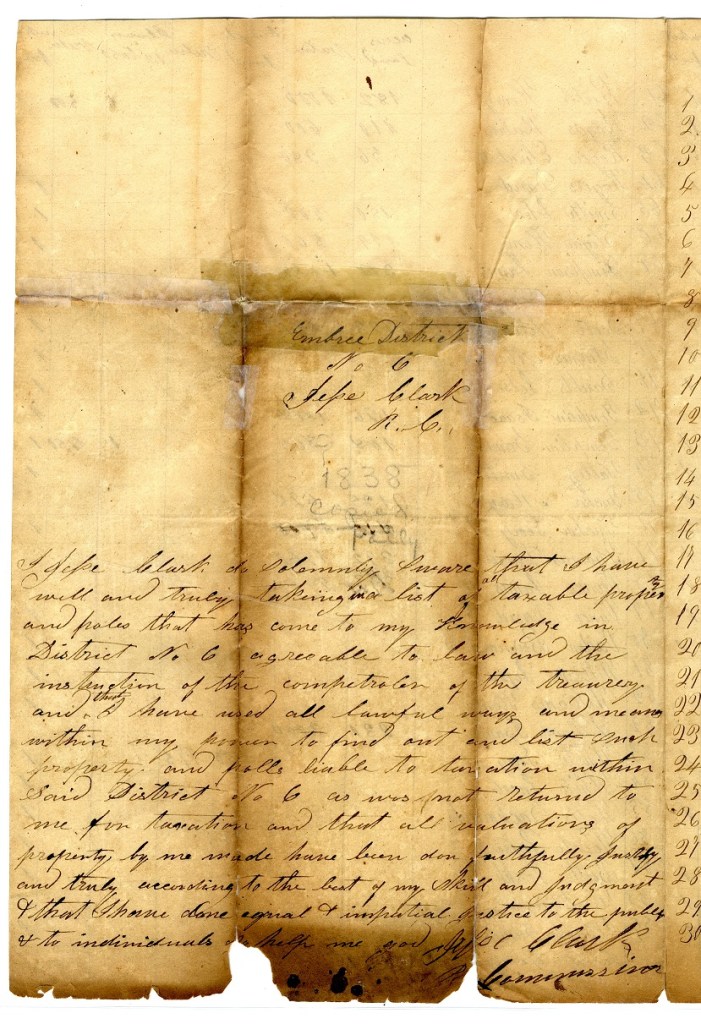 Embree District
No 6
Jesse Clark
R. C.
1838
copied
I Jesse Clark do Solomnly Sware that I have
well and truly takeing in a list of all taxable proper ty
and poles that has come to my Knowledge in
District No 6 agreeable to law and the
instruction of the competroler of the treasurey
and that I have used all lawful ways and means
within my power to find out and list such
property and polls liable to taxation within
Said District No 6 as was not returned to
me for taxation and that all valuations of
property by me made have been don faithfully Justly
and truly according to the best of my Skill and Judgment
& that I have done equal & impatial Justice to the public
& to individuals So help me god Jesse Clark
Commissinor
1
2
3
4
5
6
7
8
9
10
11
12
13
14
15
16
17
18
19
20
21
22
23
24
25
26
27
28
29
30